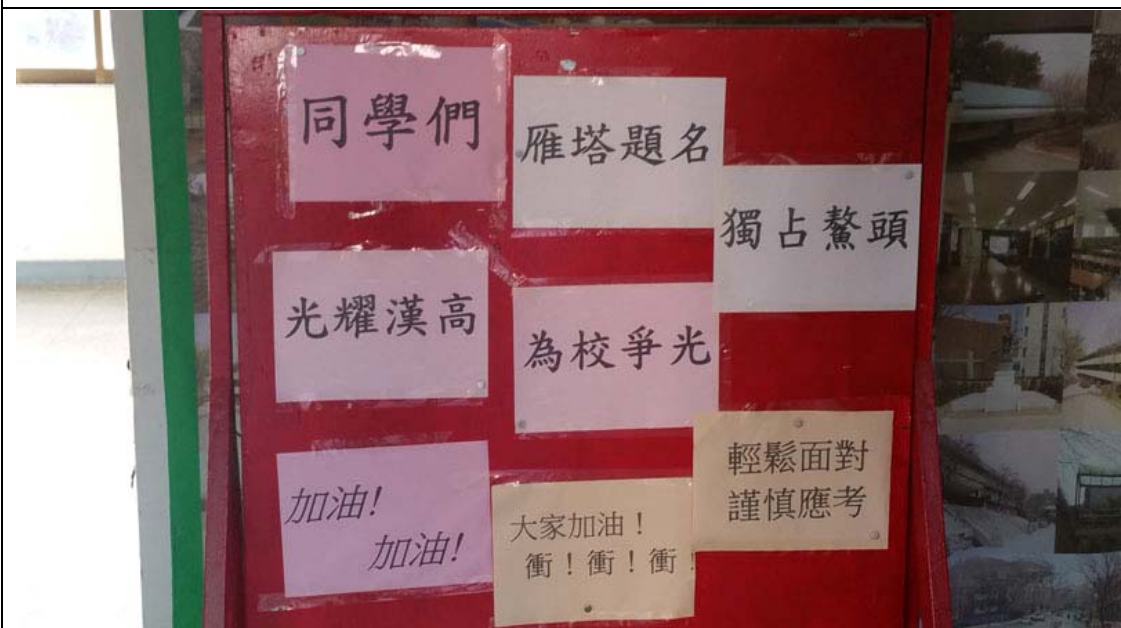 同學們
雁塔題名
獨占鰲頭
光耀漢高
為校爭光
加油!
加油!
大家加油！
衝！衝！衝！
輕鬆面對
謹慎應考